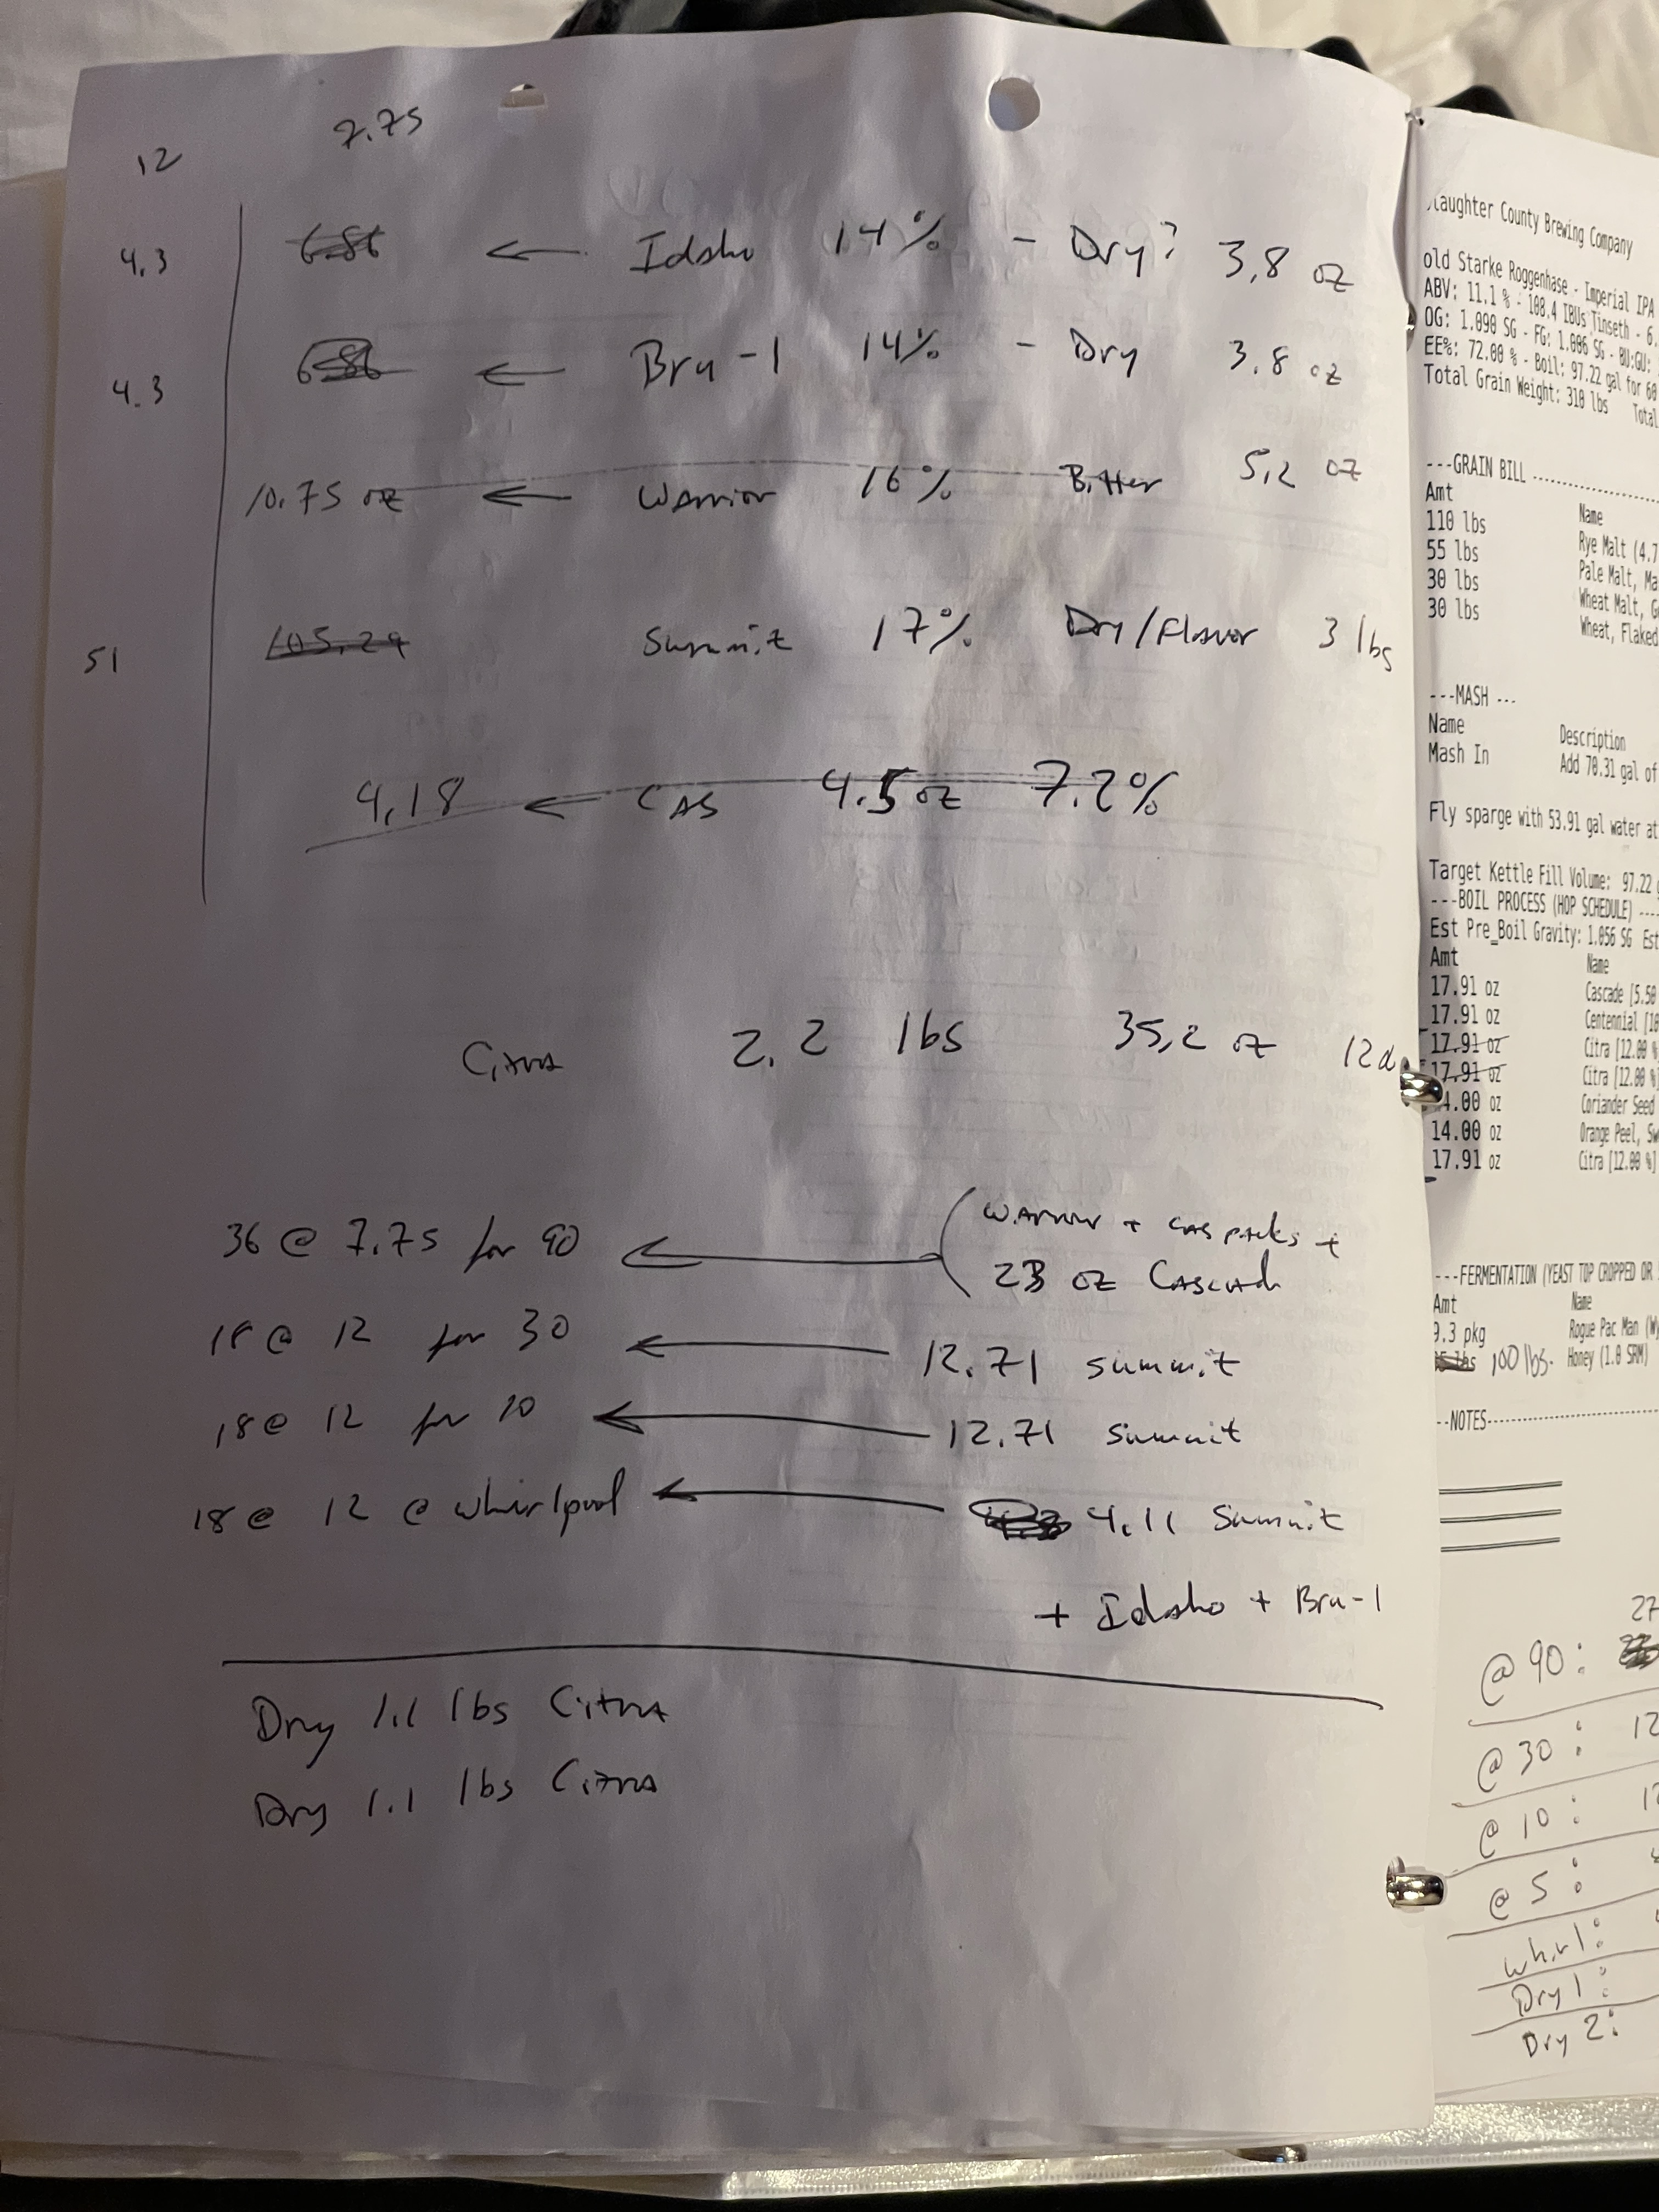 7.75
12
4.3 6.86 ← Idaho 14% - Dry? 3.8 oz
4.3 6.86 ← Bru-1 14% - Dry 3.8 oz
10.75 oz ← Warrior 16% Bitter 5.2 oz
51 105.29 Summit 17% Dry/Flavor 3 lbs
4.18 ← CAS 4.5 oz 7.2%
Citra 2.2 lbs 35.2 oz 12
36 @ 7.75 for 90 ← Warrior + CAS packs +
23 oz Cascade
18 @ 12 for 30 ← 12.71 summit
18 @ 12 for 10 ← 12.71 summit
18 @ 12 @ whirlpool ← 4.11 Summit
+ Idaho + Bru-1
Dry 1.1 lbs Citra
Dry 1.1 lbs Citra
laughter County Brewing Company
old Starke Roggenhase - Imperial IPA
ABV: 11.1 % - 108.4 IBUs Tinseth - 6.
OG: 1.090 SG - FG: 1.006 SG - BU:GU:
EE%: 72.00 % - Boil: 97.22 gal for 60
Total Grain Weight: 310 lbs Total
---GRAIN BILL
Amt Name
110 lbs Rye Malt (4.7
55 lbs Pale Malt, Ma
30 lbs Wheat Malt, G
30 lbs Wheat, Flaked
---MASH ---
Name Description
Mash In Add 70.31 gal of
Fly sparge with 53.91 gal water at
Target Kettle Fill Volume: 97.22 g
---BOIL PROCESS (HOP SCHEDULE) ----
Est Pre_Boil Gravity: 1.056 SG Est
Amt Name
17.91 oz Cascade [5.50
17.91 oz Centennial [10
17.91 oz Citra [12.00 %
17.91 oz Citra [12.00 %]
4.00 oz Coriander Seed
14.00 oz Orange Peel, Sw
17.91 oz Citra [12.00 %]
---FERMENTATION (YEAST TOP CROPPED OR
Amt Name
9.3 pkg Rogue Pac Man (Wy
lbs 100 lbs. Honey (1.0 SRM)
--NOTES
27
@ 90:
@ 30: 12
@ 10: 12
@ 5:
whirl:
Dry 1:
Dry 2: